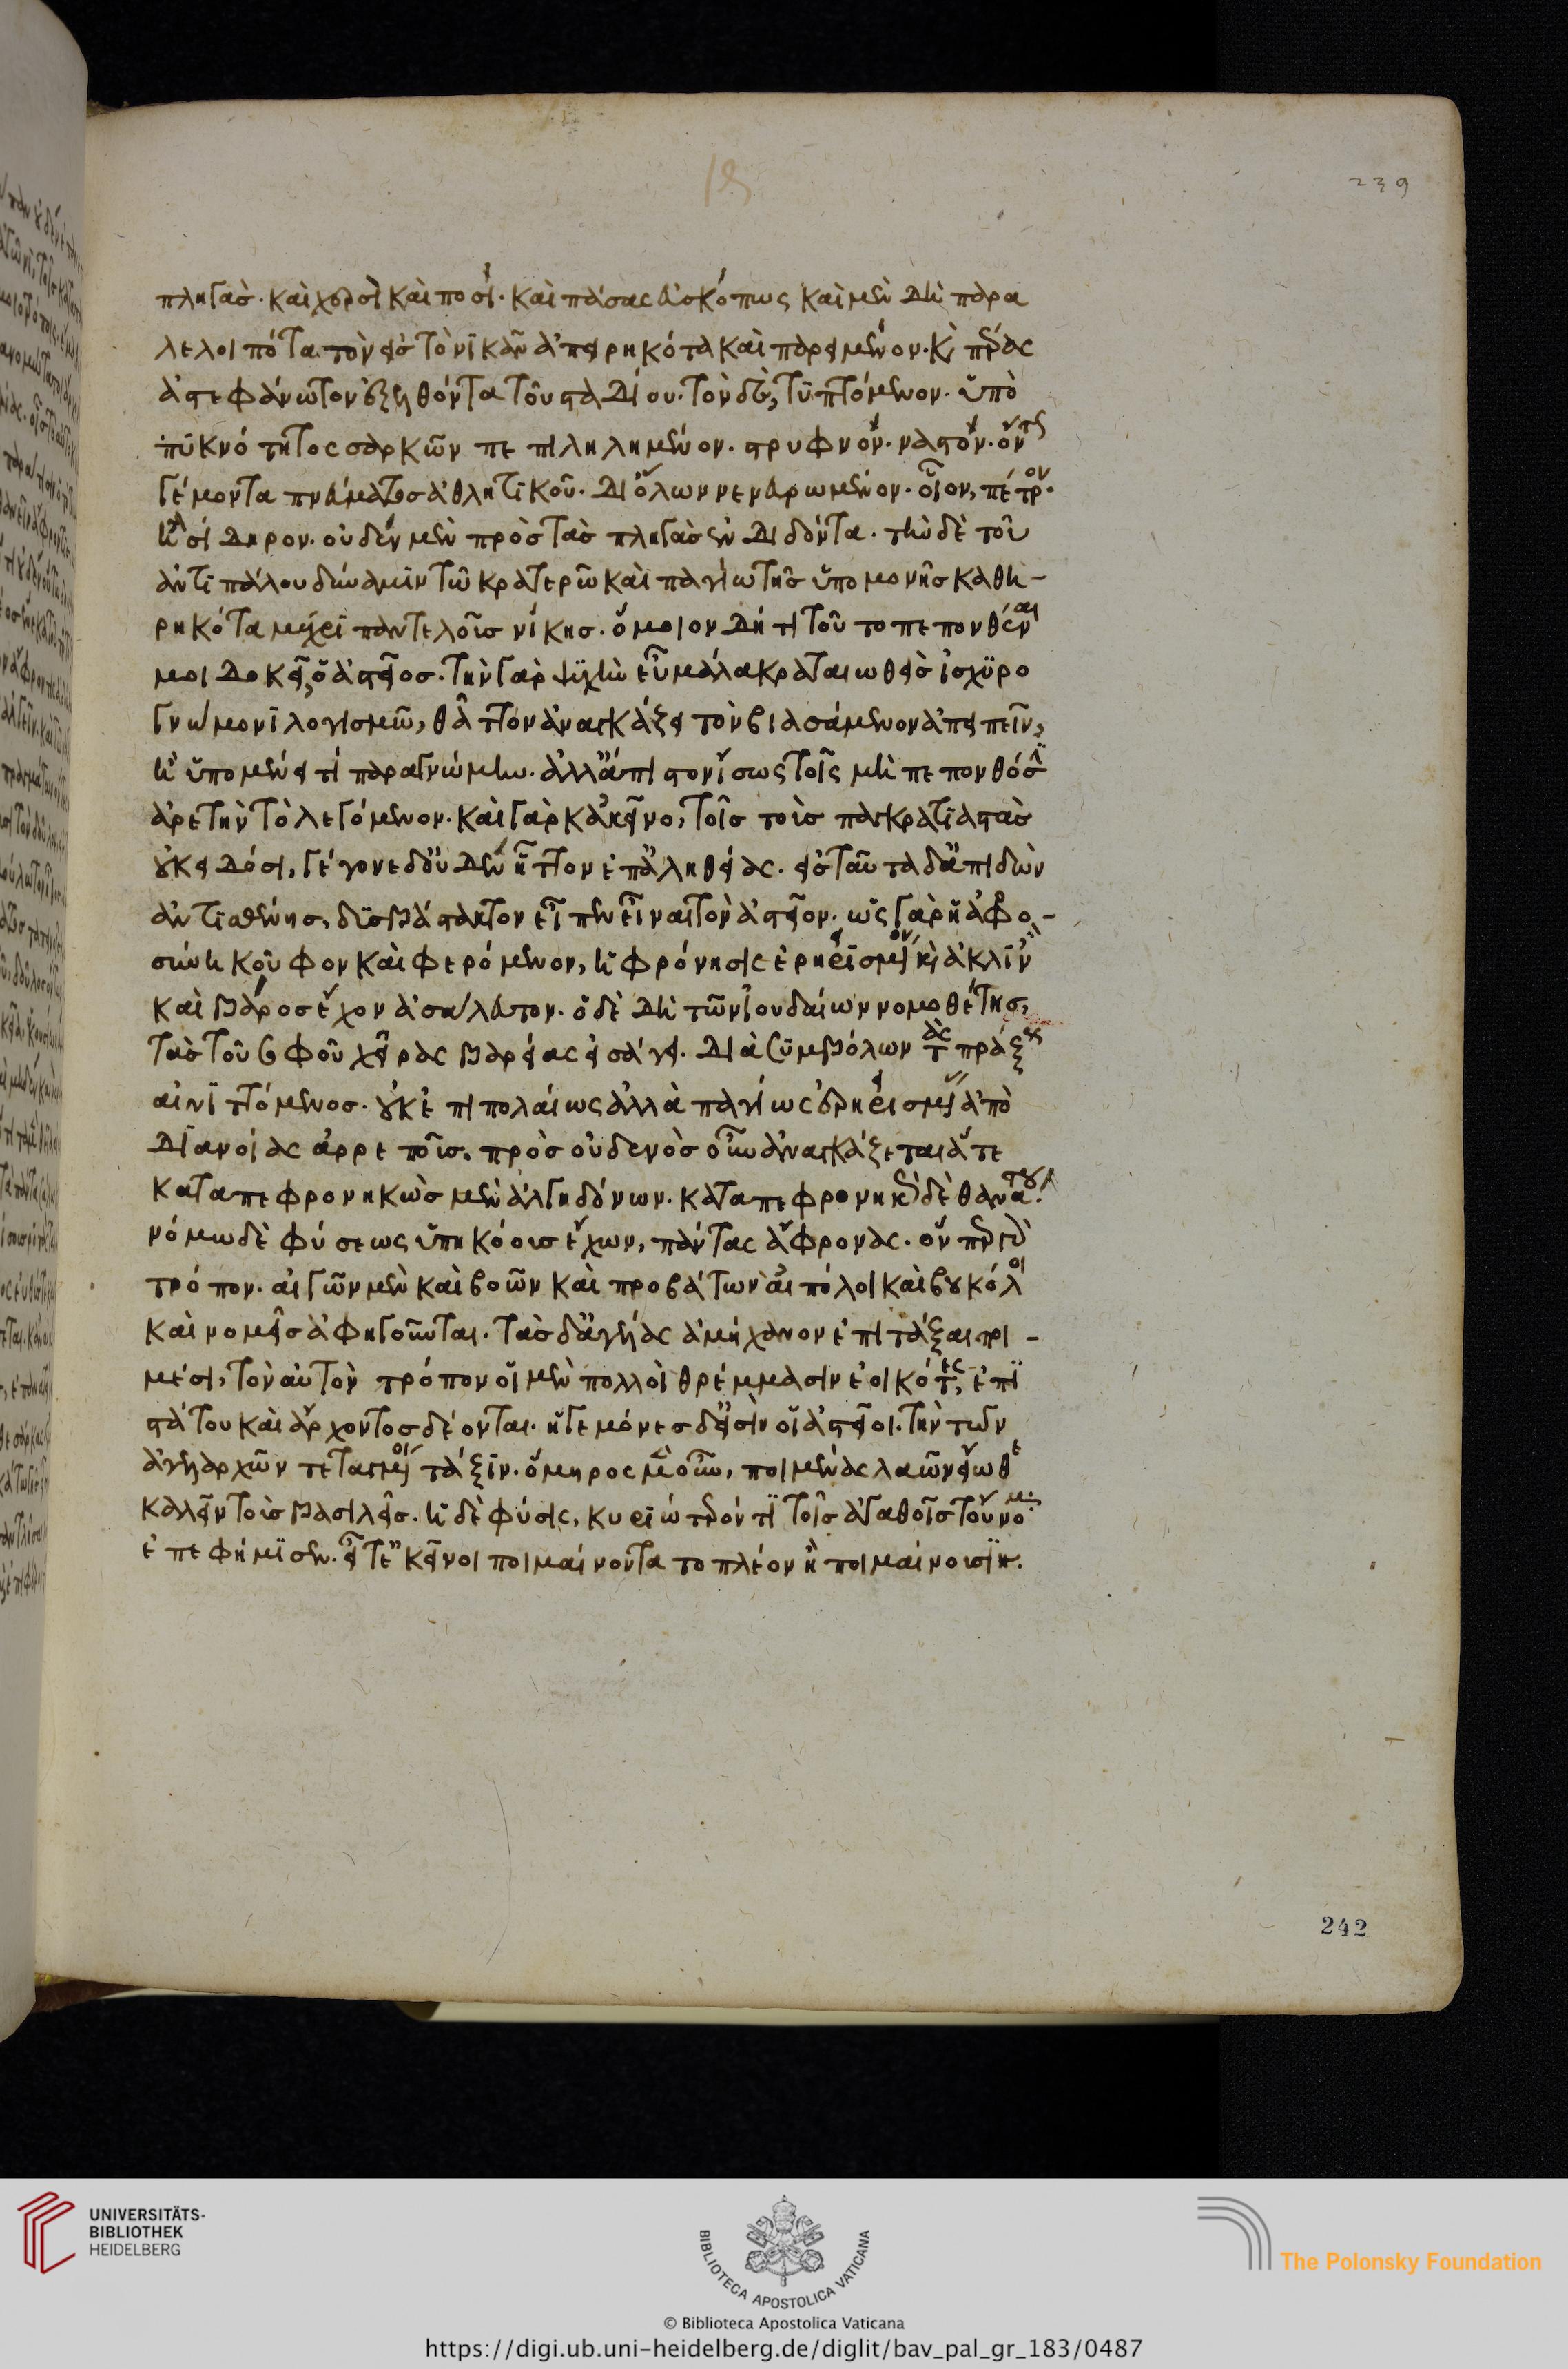 πληγὰσ· καὶ χερσὶ καὶ ποσί· καὶ πάσας εὐσκόπως καὶ μὲν δὴ παρα
λελοιπότα τὸν εἰσ τὸ νικᾶν ἀπειρηκότα καὶ παρειμένον· κ(αὶ) πέρας
ἀστεφάνωτον ἐξεληθόντα τοῦ σταδίου· τὸν δὲ, τυπτόμενον· ὑπὸ
πυκνότητος σαρκῶν πεπιληλημένον· στρυφνόν· ναστόν· ὄντως
γέμοντα πνεύματοσ ἀθλητικοῦ· δι' ὅλων νενευρωμένον· οἷον, πέτρον·
ἢ σίδηρον· οὐδὲν μὲν πρὸσ τὰσ πληγὰσ ἐνδιδόντα· τὴν δὲ τοῦ
ἀντιπάλου δύναμιν τῶ κρατερῶ καὶ παγίω τῆσ ὑπομονῆσ καθη-
ρηκότα μέχρι παντελοῦσ νίκησ· ὅμοιον δή τι τοῦτο πεπονθέναι
μοι δοκεῖ, ὁ ἀστεῖοσ· τὴν γὰρ ψυχὴν εὖ μάλα κραταιωθεὶσ ἰσχυρο
γνώμονι λογισμῶ, θᾶττον ἀναγκάζει τὸν βιασάμενον ἀπειπεῖν,
ἢ ὑπομένει τί παραγνώμην· ἀλλ' ἄπιστον ἴσως τοῖς μὴ πεπονθόσι
ἀρετὴν τὸ λεγόμενον· καὶ γὰρ κἀκεῖνο, τοῖσ τοὺσ παγκρατιαστὰσ
οὐκ εἰδόσι, γέγονε δ' οὐδὲν ἧττον ἐπ' ἀληθείας· εἰσ ταῦτα δ' ἀπιδὼν
ἀντισθένησ, δυσβάστακτον εἶπεν εἶναι τὸν ἀστεῖον· ὡς γὰρ ἡ ἀφρο-
σύνη κοῦφον καὶ φερόμενον, ἡ φρόνησις ἐρηρεισμένον κ(αὶ) ἀκλινὲς
καὶ βάροσ ἔχον ἀσάλευτον· ὁ δὲ δὴ τῶν ἰουδαίων νομοθέτησ,
τὰσ τοῦ σοφοῦ χεῖρας βαρείας εἰσάγει· διὰ συμβόλων τὰς πράξεις
αἰνιττόμενοσ· οὐκ ἐπιπολαίως ἀλλὰ παγίως ἐρηρεισμένας ἀπὸ
διανοίας ἀρρεποῦσ. πρὸσ οὐδενὸσ οὖν ἀναγκάζεται ἅτε
καταπεφρονηκὼσ μὲν ἀλγηδόνων· καταπεφρονηκὼς δὲ θανάτου·
νόμω δὲ φύσεως ὑπηκόουσ ἔχων, πάντας ἄφρονας· ὃν περ γὰρ
τρόπον· αἰγῶν μὲν καὶ βοῶν καὶ προβάτων αἰπόλοι καὶ βουκόλοι
καὶ νομεῖσ ἀφηγοῦνται· τὰσ δ' ἀγέλας ἀμήχανον ἐπιτάξαι ποι-
μέσι, τὸν αὐτὸν τρόπον οἱ μὲν πολλοὶ θρέμμασιν ἐοικότες, ἐπι
στάτου καὶ ἄρχοντοσ δέονται· ἡγεμόνεσ δ' εἰσὶν οἱ ἀστεῖοι· τὴν τῶν
ἀγελαρχῶν τεταγμένοι τάξιν· ὅμηρος μὲν οὖν, ποιμένας λαῶν εἴωθε
καλεῖν τοὺσ βασιλεῖσ· ἡ δὲ φύσις, κυριώτερον τι τοῖσ ἀγαθοῖσ τοὔνομα
ἐπεφήμισεν· εἴ γε κεῖνοι ποιμαίνονται το πλέον ἢ ποιμαίνουσιν·
239
242
UNIVERSITÄTS-
BIBLIOTHEK
HEIDELBERG
BIBLIOTECA APOSTOLICA VATICANA
The Polonsky Foundation
© Biblioteca Apostolica Vaticana
https://digi.ub.uni-heidelberg.de/diglit/bav_pal_gr_183/0487